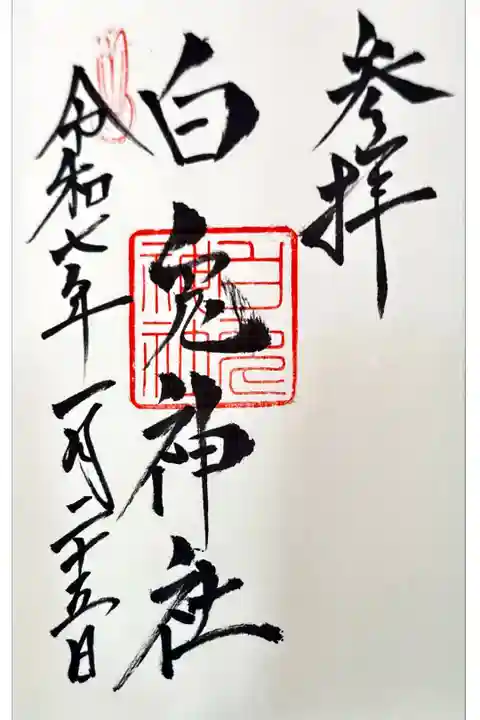 参拝
白兎神社
白兎神社
令和七年一月二十五日